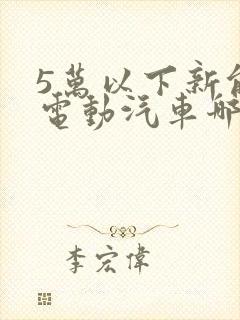 5萬以下新
電動汽車
李宏偉